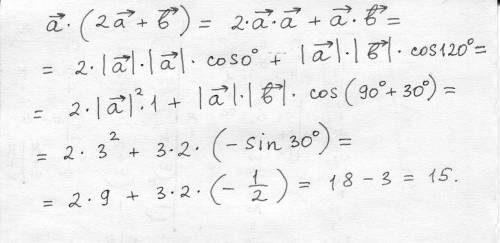 a⃗ · (2a⃗ + b⃗) = 2·a⃗·a⃗ + a⃗·b⃗ =
= 2·|a⃗|·|a⃗| · cos0° + |a⃗|·|b⃗| · cos120° =
= 2·|a⃗|²·1 + |a⃗|·|b⃗| · cos(90°+30°) =
= 2·3² + 3·2·(-sin30°) =
= 2·9 + 3·2·(-1/2) = 18-3 = 15.